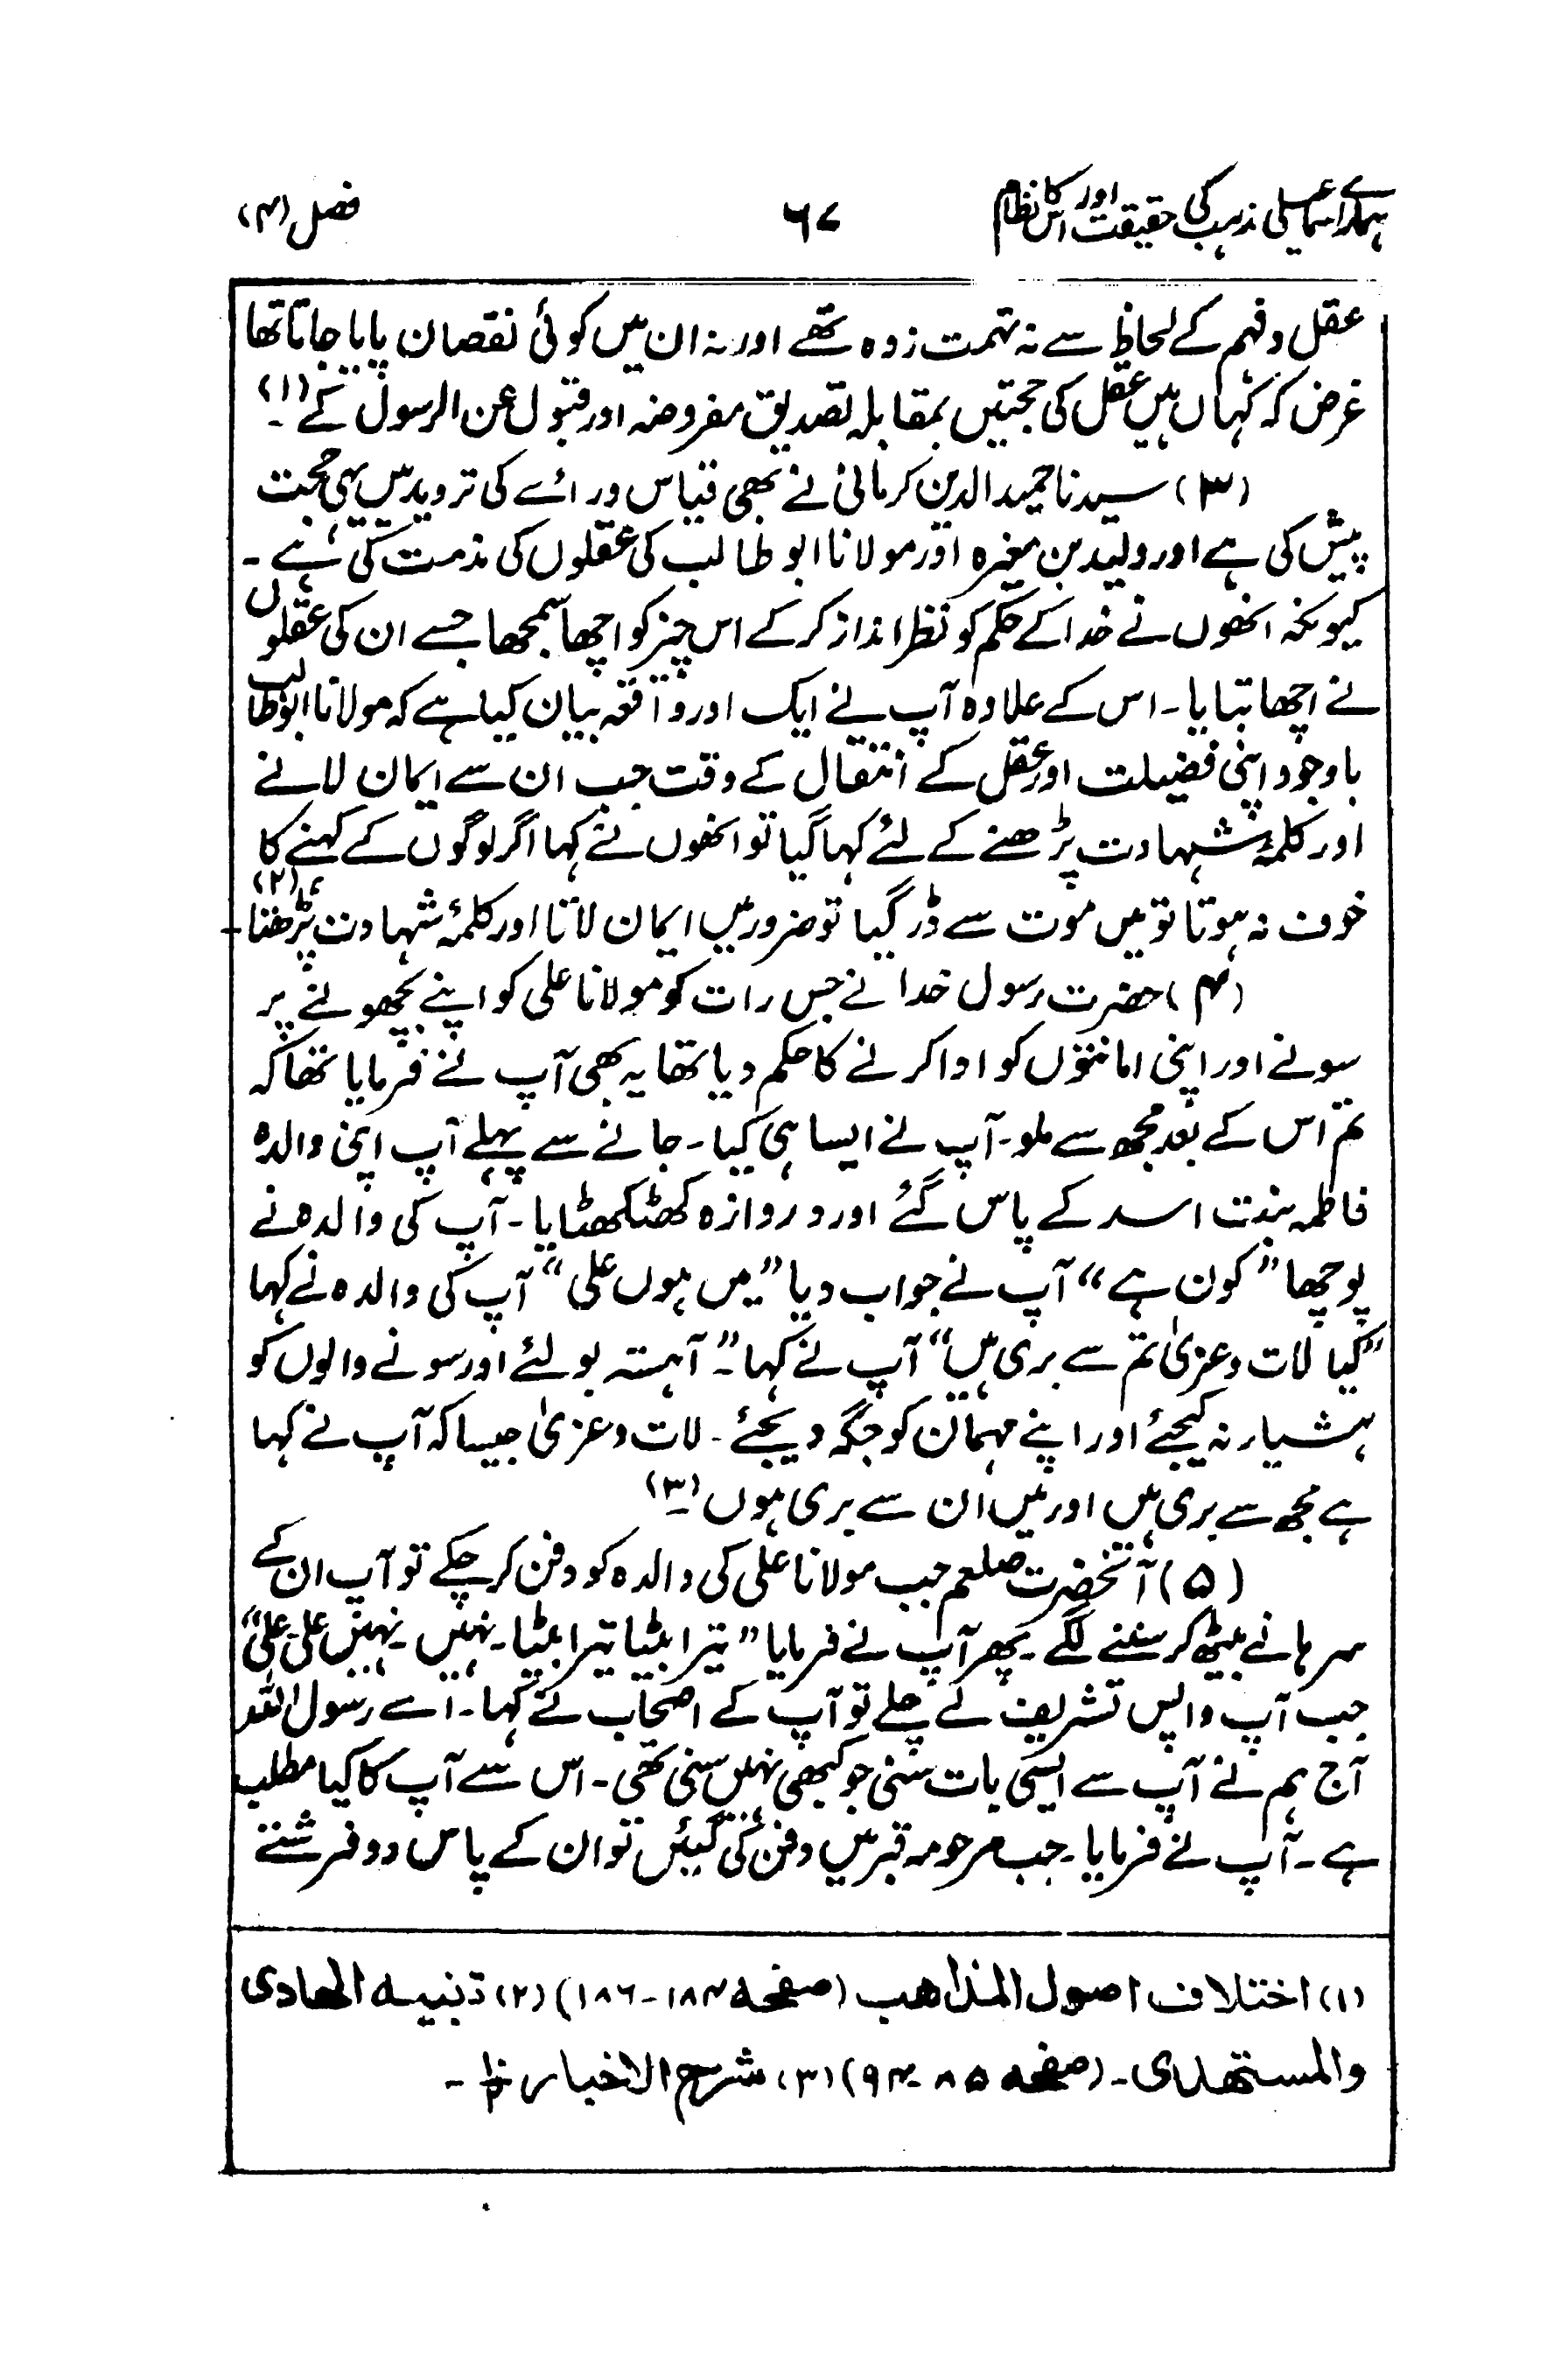 ہمارے اسماعیلی مذہب کی حقیقت اور اس کا نظام ۶۷ فصل (۴)
عقل و فہم کے لحاظ سے نہ تہمت زدہ تھے اور نہ ان میں کوئی نقصان پایا جاتا تھا
غرض کہ کہاں ہیں عقل کی حجتیں بمقابلہ تصدیق مفروضہ اور قبول عن الرسول کے (۱)۔
(۳) سیدنا حمید الدین کرمانی نے بھی قیاس ورائے کی تردید میں یہی حجت
پیش کی ہے اور ولید بن مغیرہ اور مولانا ابو طالب کی عقلوں کی مذمت کی ہے۔
کیونکہ انھوں نے خدا کے حکم کو نظر انداز کر کے اس چیز کو اچھا سمجھا جسے ان کی عقلوں
نے اچھا بتایا۔ اس کے علاوہ آپ نے ایک اور واقعہ بیان کیا ہے کہ مولانا ابو طالب
باوجود اپنی فضیلت اور عقل کے انتقال کے وقت جب ان سے ایمان لانے
اور کلمۂ شہادت پڑھنے کے لئے کہا گیا تو انھوں نے کہا اگر لوگوں کے کہنے کا
خوف نہ ہوتا تو میں موت سے ڈر گیا تو ضرور میں ایمان لاتا اور کلمۂ شہادت پڑھتا (۲)۔
(۴) حضرت رسول خدا نے جس رات کو مولانا علی کو اپنے بچھونے پر
سونے اور اپنی امانتوں کو ادا کرنے کا حکم دیا تھا یہ بھی آپ نے فرمایا تھا کہ
تم اس کے بعد مجھ سے ملو۔ آپ نے ایسا ہی کیا۔ جانے سے پہلے آپ اپنی والدہ
فاطمہ بنت اسد کے پاس گئے اور دروازہ کھٹکھٹایا۔ آپ کی والدہ نے
پوچھا ”کون ہے“ آپ نے جواب دیا ”میں ہوں علی“ آپ کی والدہ نے کہا
”کیا لات و عزیٰ تم سے بری ہیں“ آپ نے کہا۔ ”آہستہ بولئے اور سونے والوں کو
ہشیار نہ کیجئے اور اپنے مہمان کو جگہ دیجئے۔ لات و عزیٰ جیسا کہ آپ نے کہا
ہے مجھ سے بری ہیں اور میں ان سے بری ہوں (۳)۔
(۵) آنحضرت صلعم جب مولانا علی کی والدہ کو دفن کر چکے تو آپ ان کے
سرہانے بیٹھ کر سننے لگے۔ پھر آپ نے فرمایا ”تیرا بیٹا تیرا بیٹا۔ نہیں۔ نہیں علی۔ علی“
جب آپ واپس تشریف لے چلے تو آپ کے اصحاب نے کہا۔ اے رسول اللہ
آج ہم نے آپ سے ایسی بات سنی جو کبھی نہیں سنی تھی۔ اس سے آپ کا کیا مطلب
ہے۔ آپ نے فرمایا۔ جب مرحومہ قبر میں دفن کی گئیں تو ان کے پاس دو فرشتے
(۱) اختلاف اصول المذاهب (صفحه ۱۸۴-۱۸۶) (۲) تنبیہ الهادی
والمستهدی۔ (صفحه ۸۵-۹۴) (۳) شرح الاخبار